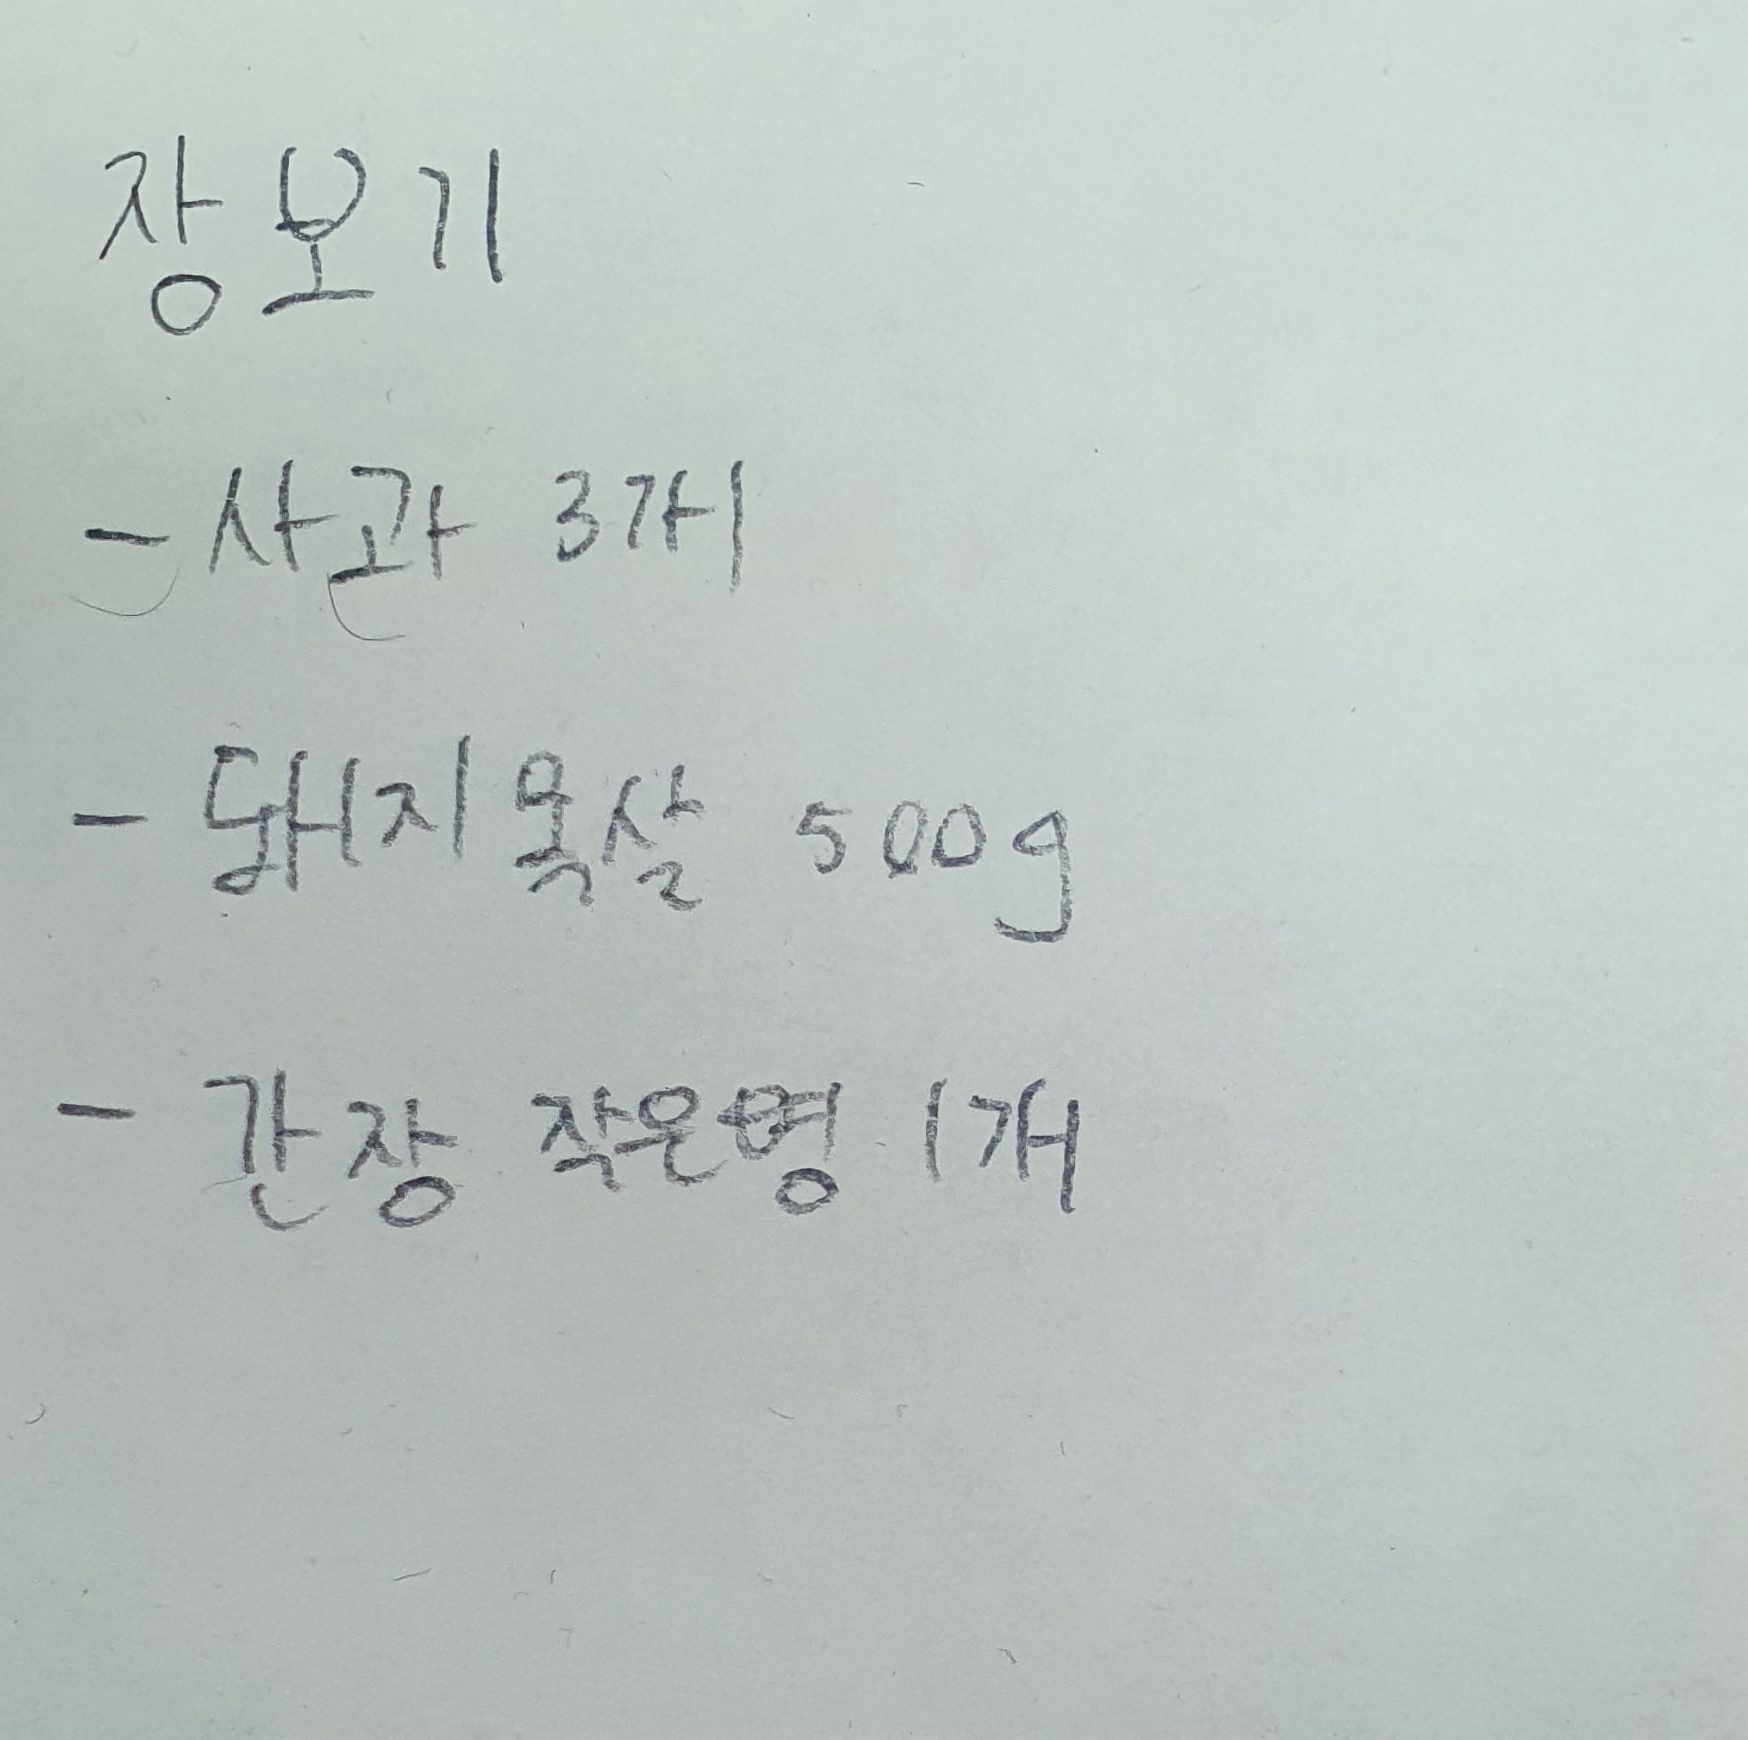 장보기
- 사과 3개
- 돼지목살 500g
- 간장 작은병 1개